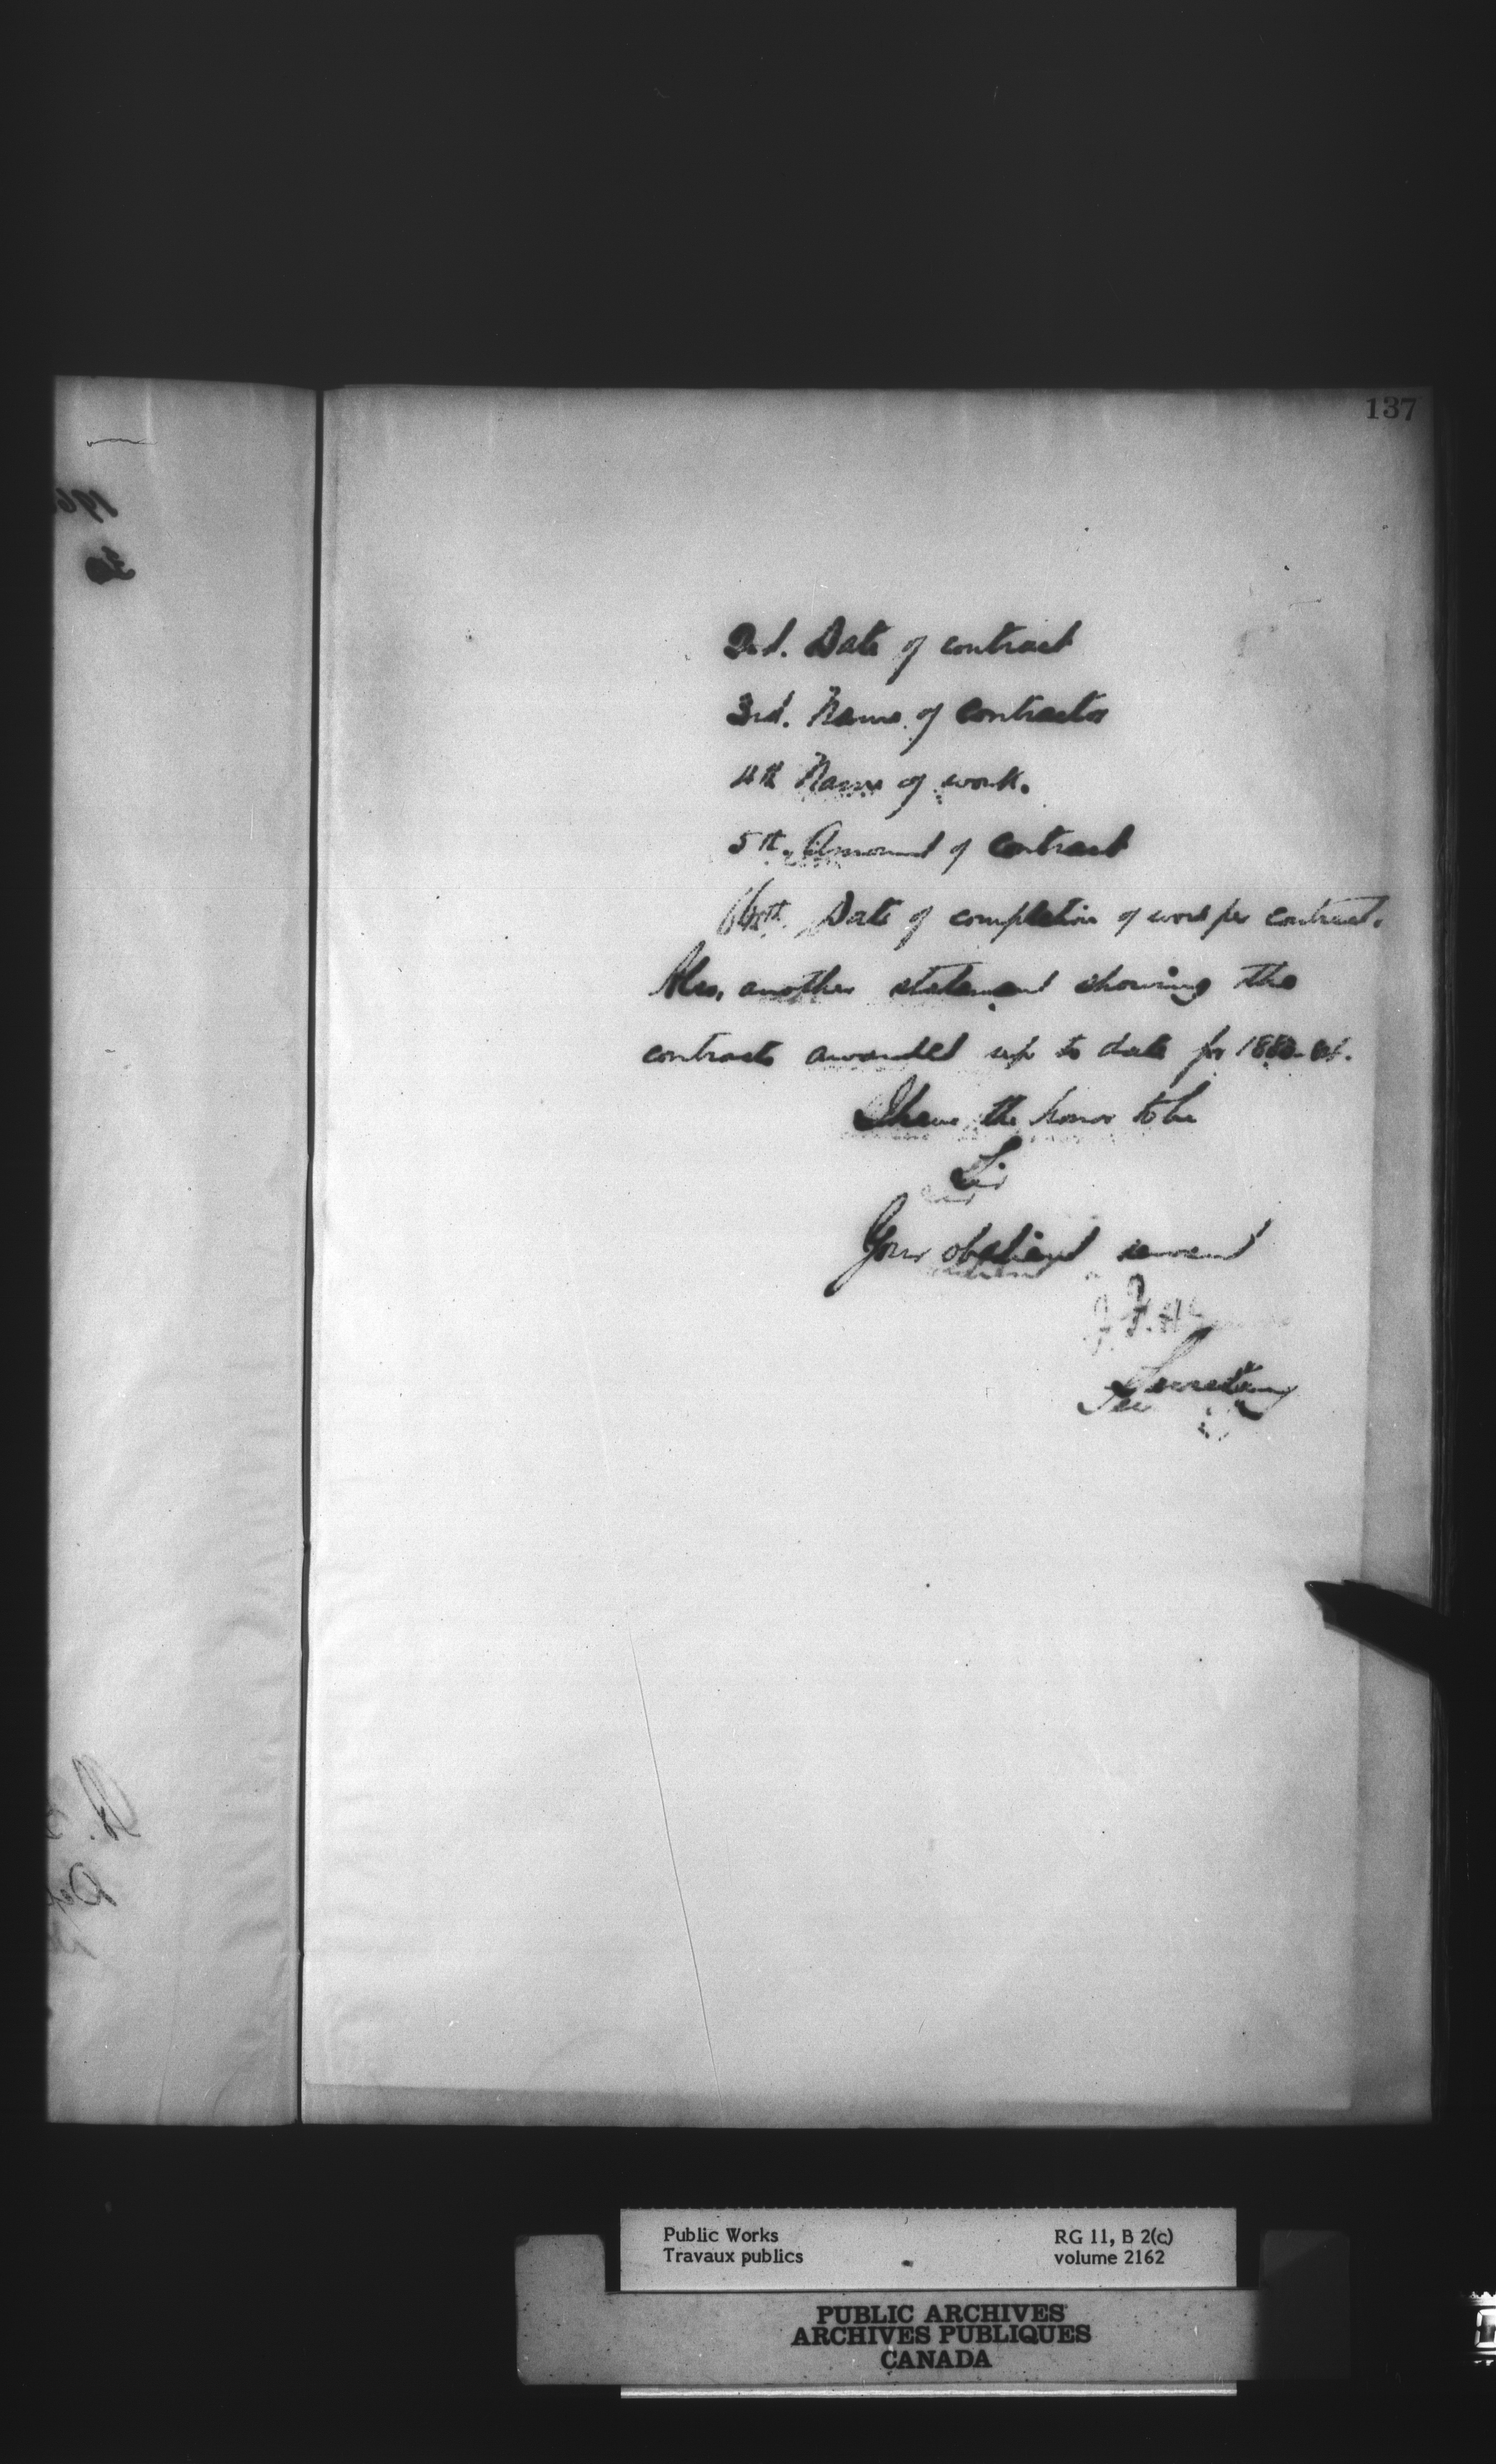 137
2nd. Date of contract
3rd. Name of contractor
4th Name of work.
5th. Amount of contract
6th. Date of completion of work per contract.
Also, another statement showing the
contracts awarded up to date for 1880-81.
I have the honor to be
Sir
Your obedient servant
Secretary
Public Works
Travaux publics
RG 11, B 2(c)
volume 2162
PUBLIC ARCHIVES
ARCHIVES PUBLIQUES
CANADA